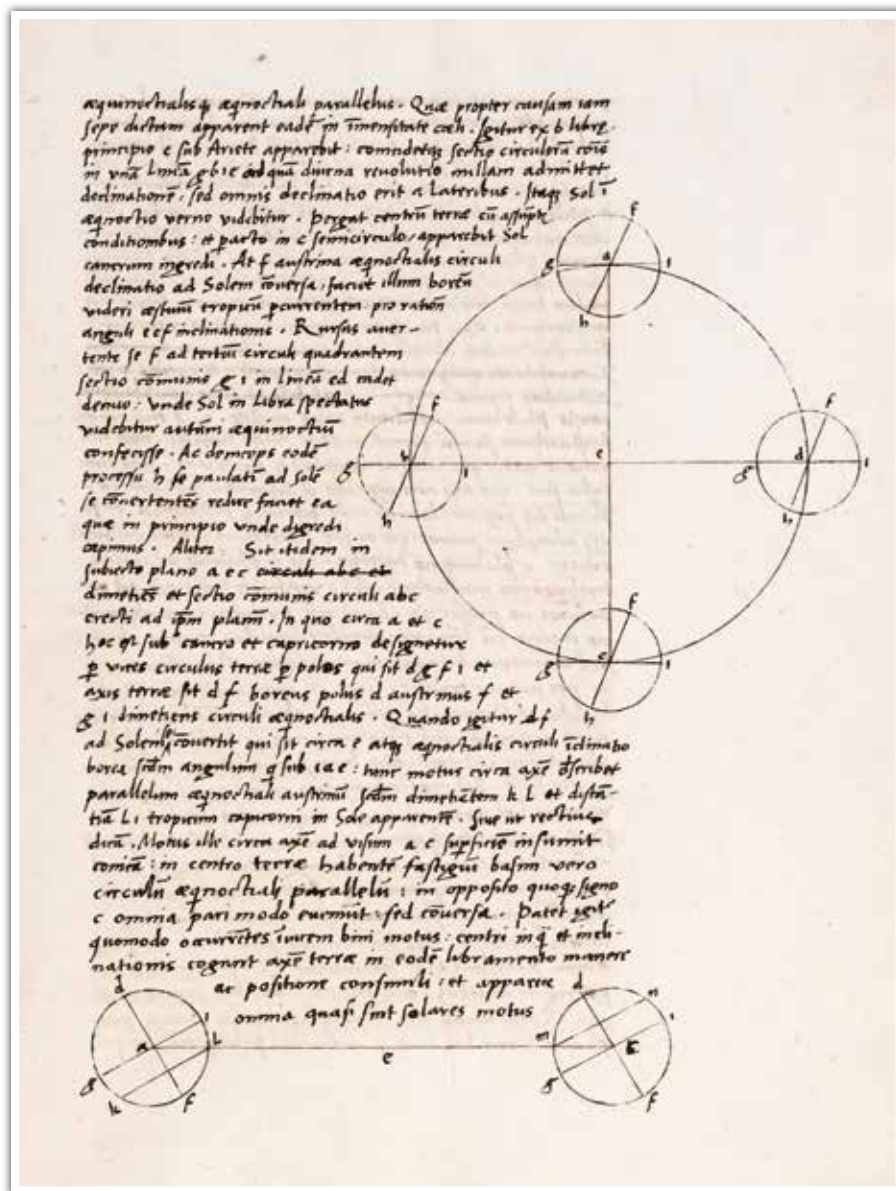 æquinoctialisq æqnoctiali parallelus. Quæ propter causam iam
sepe dictam apparent eadē in īmensitate cœli. Igitur ex b librę
principio e sub Ariete apparebit: concidetq sectio circulorū cōis
in vnā lineā g b i e ad quā diurna revolutio nullam admittet
declinationē, sed omnis declinatio erit a lateribus. Itaq Sol ī
æqnoctio verno videbitur. Pergat centrū terræ cū assūptis
conditionibus: et pacto in c semicirculo, apparebit Sol
cancrum ingredi. At f austrina æqnoctialis circuli
declinatio ad Solem cōversa, faciet illum boreū
videri æstiuū tropicū pcurrentem pro ratiōn
anguli e c f inclinationis. Rursus auer-
tente se f ad tertiū circuli quadrantem
sectio cōmunis g i in lineā ed cadet
denuo: vnde Sol in Libra spectatus
videbitur autūni æquinoctiū
confecisse. Ac deinceps eodē
processu h se paulatī ad Solē
se cōvertentēs redire faciet ea
quæ in principio vnde digredi
cœpimus. Aliter. Sit itidem in
subiecto plano a e c circuli abc et
dimetiēs et sectio cōmunis circuli abc
erecti ad ipm planū. In quo circa a et c
hoc est sub cancro et capricorno designetur
p vices circulus terræ p polos qui sit d g f i et
axis terræ sit d f boreus polus d austrinus f et
g i dimetiens circuli æqnoctialis. Quando igitur d f
ad Solem se cōvertit qui sit circa e atq æqnoctialis circuli īclinatio
borea scdm angulum q sub i a e: tunc motus circa axē describet
parallelum æqnoctiali austrinū scdm dimetiētem k l et distā-
tiā l i tropicum capicorni in Sole apparentē. Siue ut rectius
dicā. Motus ille circa axē ad visum a e supficiē insumit
conicā: in centro terræ habentē fastigiū basim vero
circulū æqnoctiali parallelū: in opposito quoq signo
c omnia pari modo eueniūt: sed cōversa. Patet igit
quomodo occurrētes īuicem bini motus: centri inq et incli-
nationis cogunt axē terræ in eodē libramento manere
ac positione consimili: et apparere
omnia quasi sint solares motus
f
a
g i
h
f f
b e d
g i g i
h h
f
c
g i
h
d d
i n
a l m i
e
g g
k f f